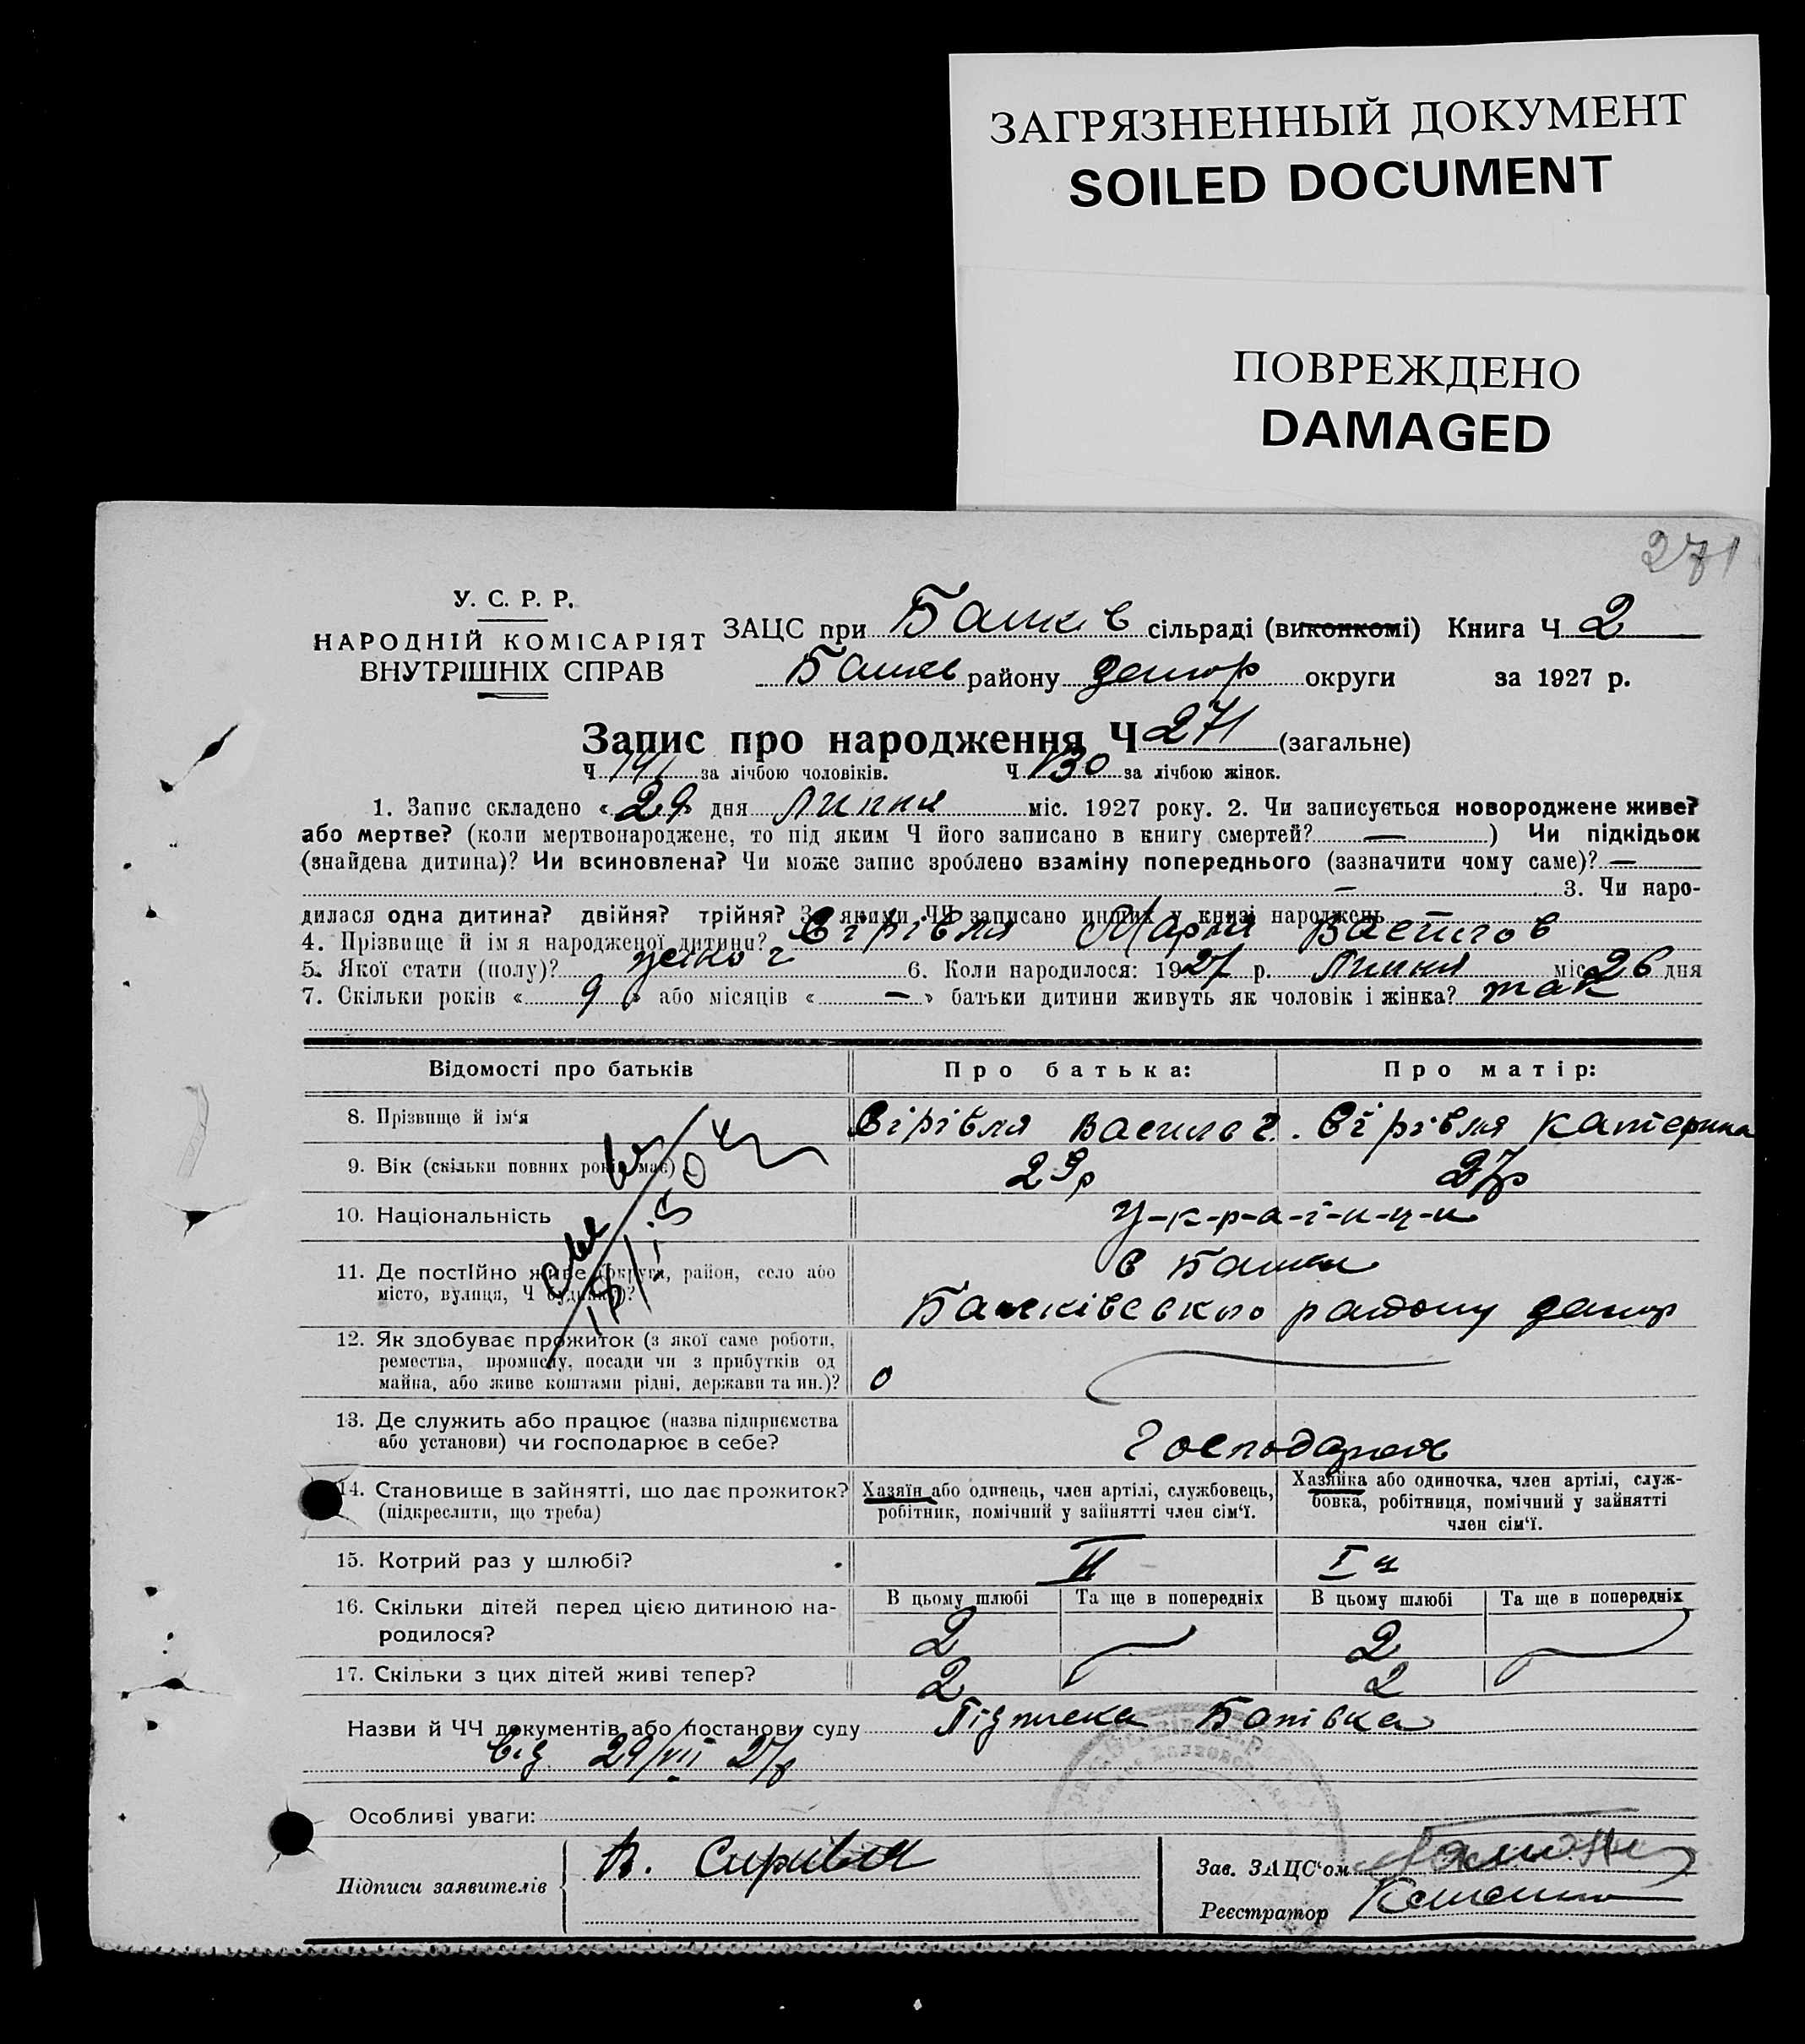 ЗАГРЯЗНЕННЫЙ ДОКУМЕНТ
SOILED DOCUMENT
ПОВРЕЖДЕНО
DAMAGED
271
У. С. Р. Р.
НАРОДНІЙ КОМІСАРІЯТ
ВНУТРІШНІХ СПРАВ
ЗАЦС при сільраді (виконкомі) Книга Ч 2
району округи за 1927 р.
Запис про народження Ч 271 (загальне)
Ч 141 за лічбою чоловіків. Ч 130 за лічбою жінок.
1. Запис складено « 29 » дня Липня міс. 1927 року. 2. Чи записується новороджене живе?
або мертве? (коли мертвонароджене, то під яким Ч його записано в книгу смертей? — ) Чи підкідьок
(знайдена дитина)? Чи всиновлена? Чи може запис зроблено взаміну попереднього (зазначити чому саме)? —
— 3. Чи наро-
дилася одна дитина? двійня? трійня? За якими ЧЧ записано инших у книзі народжень
4. Прізвище й ім я народженої дитини? Сірівля Марія
5. Якої стати (полу)? 6. Коли народилося: 1927 р. Липня міс. 26 дня
7. Скільки років « 9 » або місяців « — » батьки дитини живуть як чоловік і жінка? так
Відомості про батьків Про батька: Про матір:
8. Прізвище й ім‘я Сірівля Василь Сірівля Катерина
9. Вік (скільки повних років має) 29р 27р
10. Національність У-к-р-а-ї-н-ц-и
11. Де постійно живе (округа, район, село або
місто, вулиця, Ч будинку)?
району
12. Як здобуває прожиток (з якої саме роботи,
ремества, промислу, посади чи з прибутків од
майна, або живе коштами рідні, держави та ин.)?
13. Де служить або працює (назва підприємства
або установи) чи господарює в себе?
14. Становище в зайнятті, що дає прожиток?
(підкреслити, що треба)
Хазяїн або одинець, член артілі, службовець,
робітник, помічний у зайнятті член сім‘ї.
Хазяйка або одиночка, член артілі, служ-
бовка, робітниця, помічний у зайнятті
член сім‘ї.
15. Котрий раз у шлюбі? II I
16. Скільки дітей перед цією дитиною на-
родилося?
В цьому шлюбі Та ще в попередніх В цьому шлюбі Та ще в попередніх
2 2
17. Скільки з цих дітей живі тепер? 2 2
Назви й ЧЧ документів або постанови суду Підписка Батівка
від 29/VII 27р
Особливі уваги:
Підписи заявителів В. Сиривля
Зав. ЗАЦС‘ом
Реєстратор